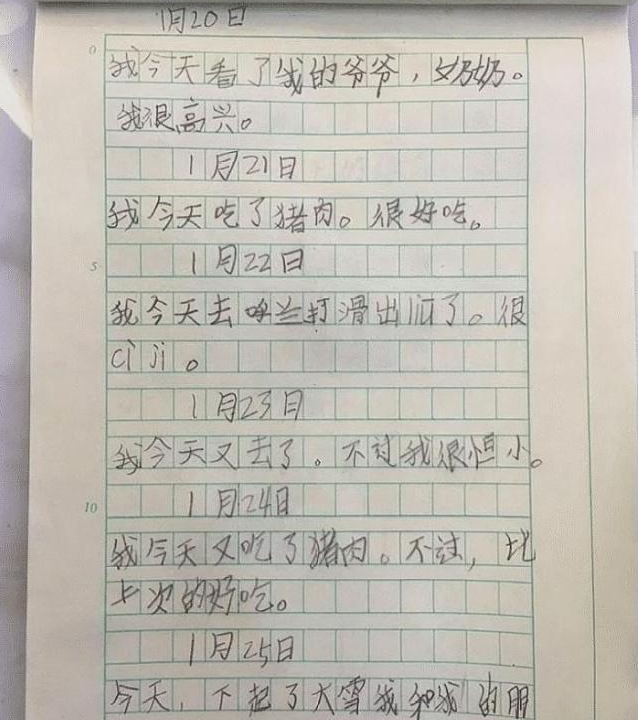 1月20日
0
我今天看了我的爷爷，奶奶。
我很高兴。
1月21日
我今天吃了猪肉。很好吃。
5
1月22日
我今天去呼兰打滑出了。很
cì jī。
1月23日
我今天又去了。不过我很恒小。
10
1月24日
我今天又吃了猪肉。不过，比
上次的好吃。
1月25日
今天，下起了大雪我和我的朋